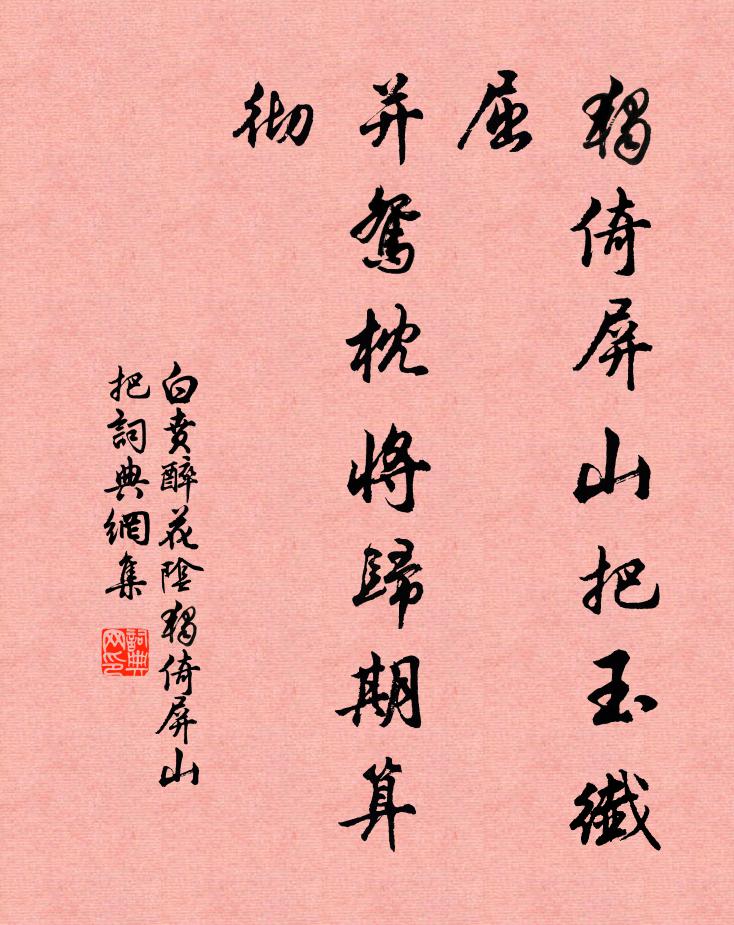 獨倚屏山把玉纖
屈
并鴛枕將歸期算
彻
白賁醉花陰獨倚屏山
把詞典網集
詞典网印